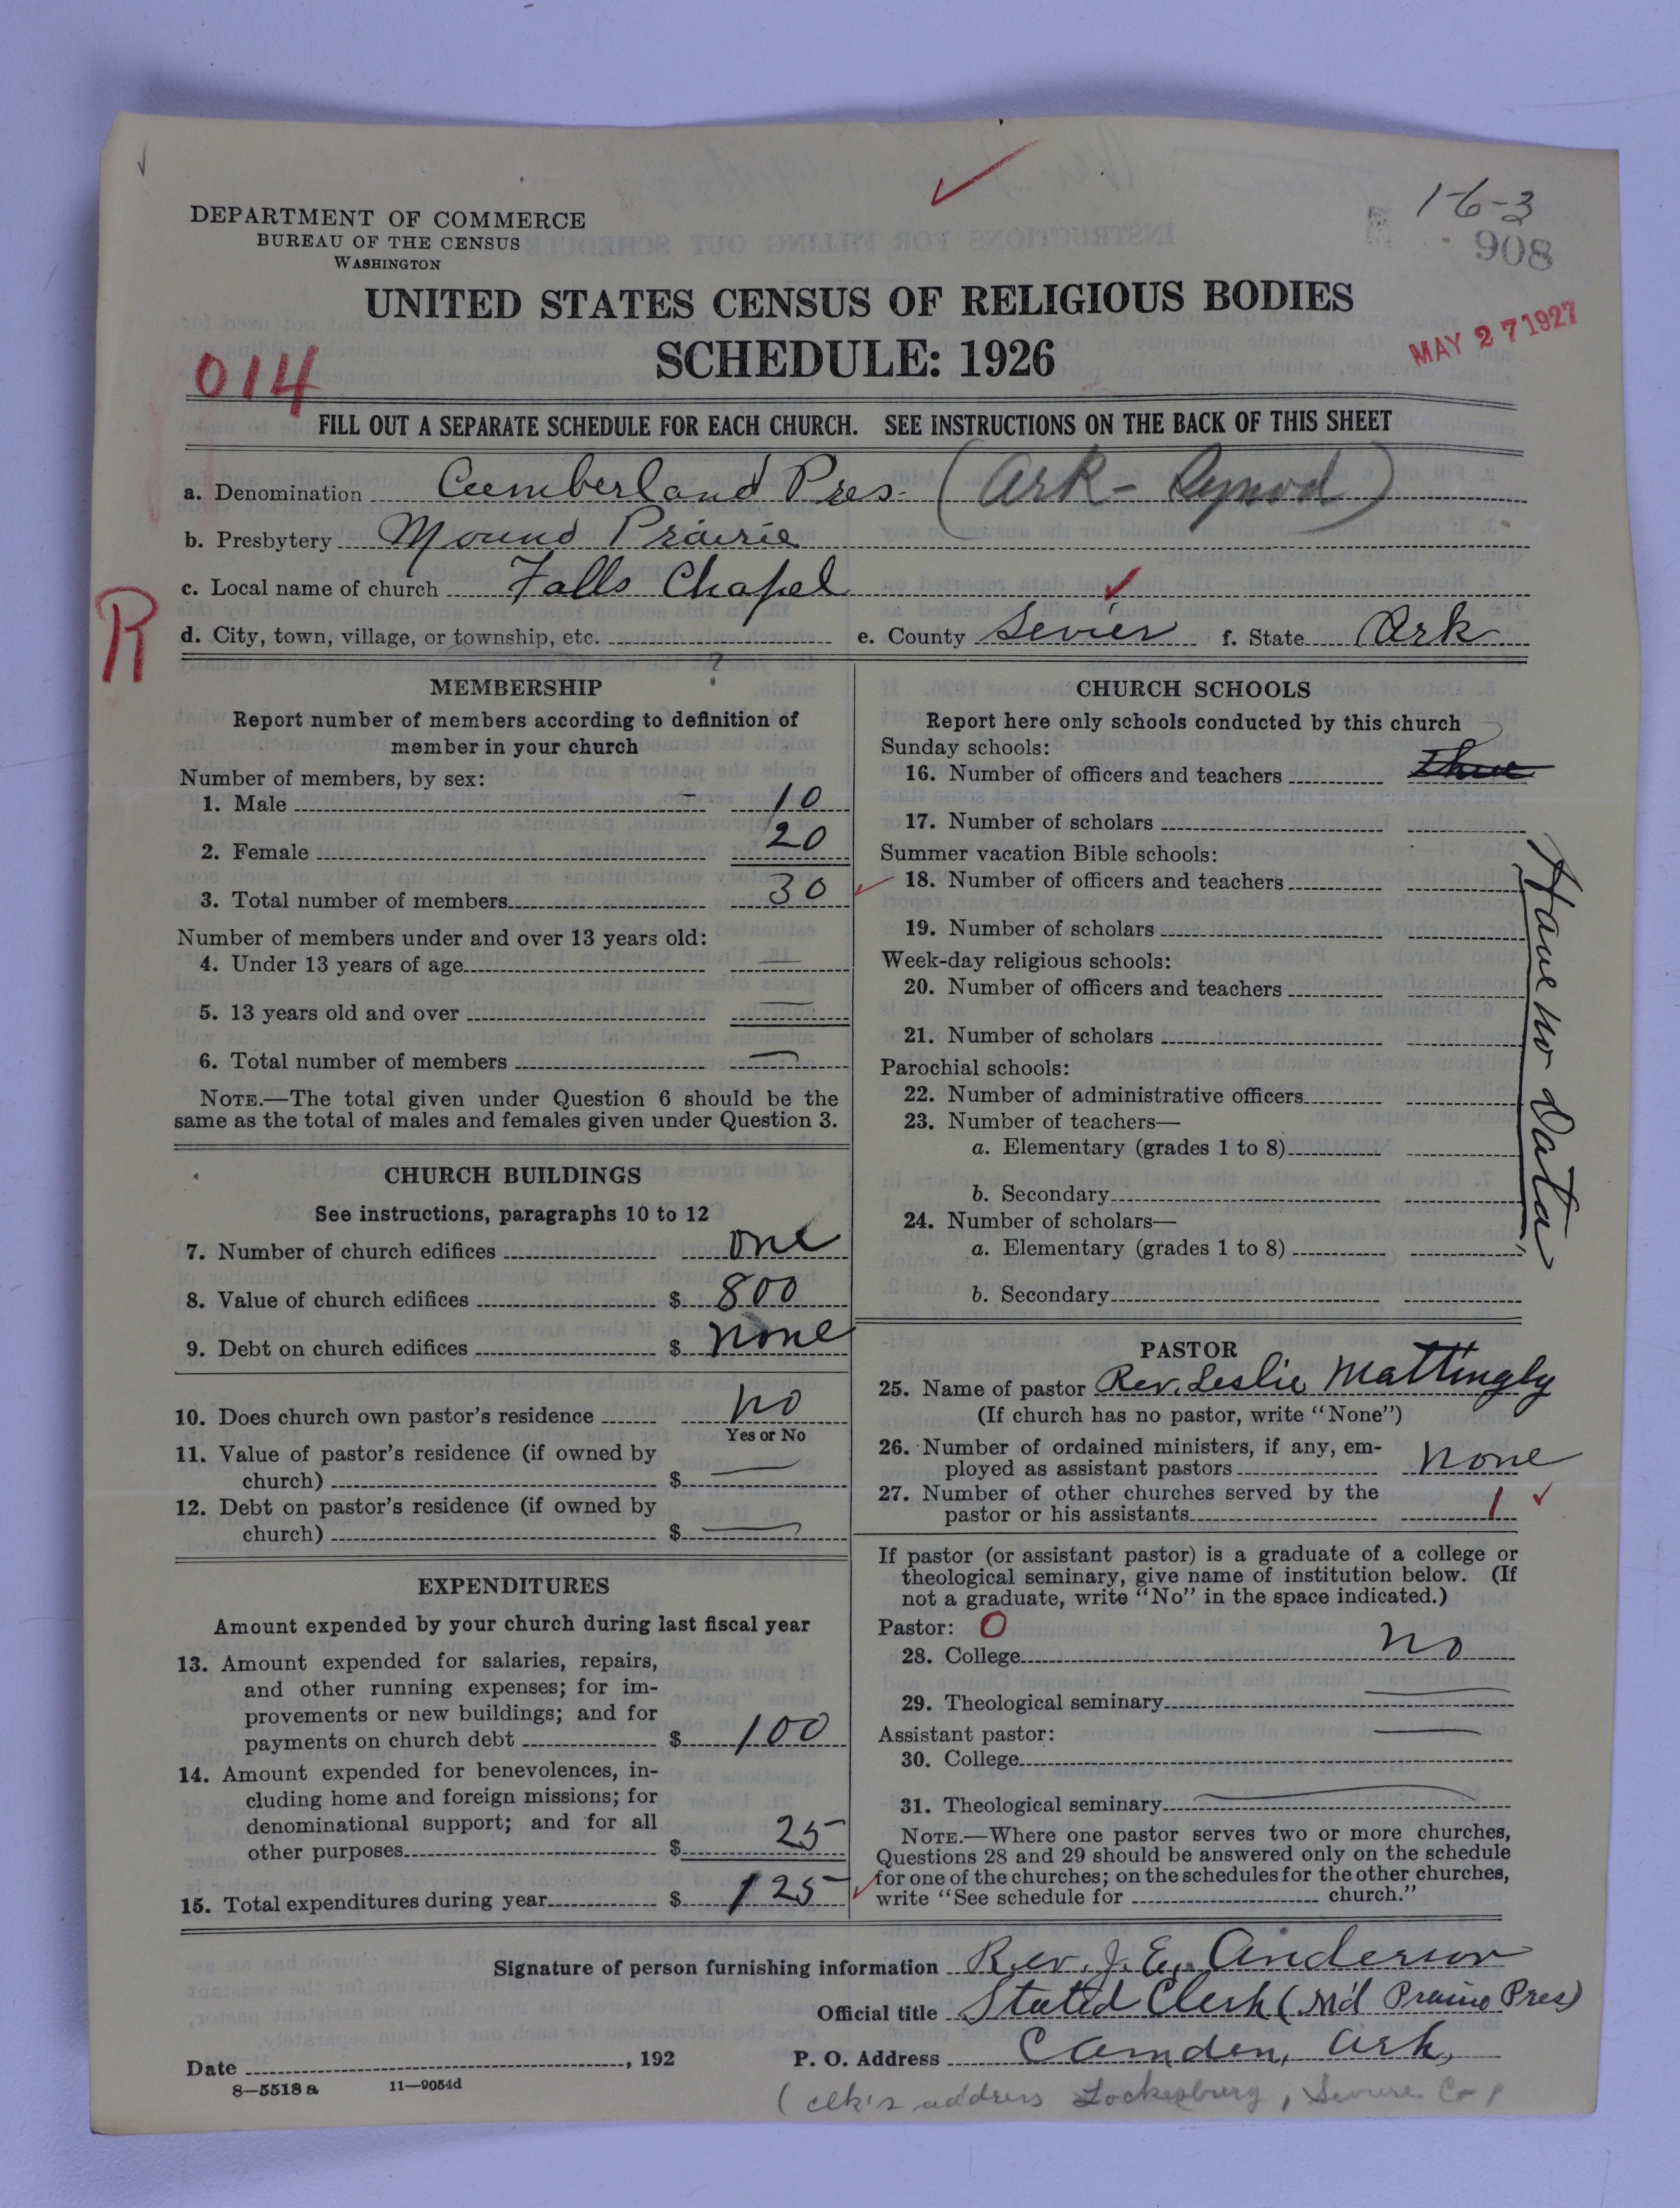 1-6-3
908
DEPARTMENT OF COMMERCE
BUREAU OF THE CENSUS
WASHINGTON
UNITED STATES CENSUS OF RELIGIOUS BODIES
SCHEDULE: 1926
MAY 27 1927
014
FILL OUT A SEPARATE SCHEDULE FOR EACH CHURCH. SEE INSTRUCTIONS ON THE BACK OF THIS SHEET
a. Denomination Cumberland Pres. (Ark- Synod)
b. Presbytery Mound Prairie
c. Local name of church Falls Chapel
R
d. City, town, village, or township, etc. e. County Sevier f. State Ark
?
MEMBERSHIP
Report number of members according to definition of
member in your church
Number of members, by sex:
1. Male 10
2. Female 20
3. Total number of members 30
Number of members under and over 13 years old:
4. Under 13 years of age —
5. 13 years old and over —
6. Total number of members —
NOTE.—The total given under Question 6 should be the
same as the total of males and females given under Question 3.
CHURCH BUILDINGS
See instructions, paragraphs 10 to 12
7. Number of church edifices one
8. Value of church edifices $ 800
9. Debt on church edifices $ none
10. Does church own pastor's residence no
Yes or No
11. Value of pastor's residence (if owned by
church) $ —
12. Debt on pastor's residence (if owned by
church) $ —
EXPENDITURES
Amount expended by your church during last fiscal year
13. Amount expended for salaries, repairs,
and other running expenses; for im-
provements or new buildings; and for
payments on church debt $ 100
14. Amount expended for benevolences, in-
cluding home and foreign missions; for
denominational support; and for all
other purposes $ 25
15. Total expenditures during year $ 125
CHURCH SCHOOLS
Report here only schools conducted by this church
Sunday schools:
16. Number of officers and teachers
17. Number of scholars
Summer vacation Bible schools:
18. Number of officers and teachers
19. Number of scholars
Week-day religious schools:
20. Number of officers and teachers
21. Number of scholars
Parochial schools:
22. Number of administrative officers
23. Number of teachers—
a. Elementary (grades 1 to 8)
b. Secondary
24. Number of scholars—
a. Elementary (grades 1 to 8)
b. Secondary
Have no Data
PASTOR
25. Name of pastor Rev. Leslie Mattingly
(If church has no pastor, write "None")
26. Number of ordained ministers, if any, em-
ployed as assistant pastors none
27. Number of other churches served by the
pastor or his assistants 1
If pastor (or assistant pastor) is a graduate of a college or
theological seminary, give name of institution below. (If
not a graduate, write "No" in the space indicated.)
Pastor: O
28. College no
29. Theological seminary —
Assistant pastor: —
30. College
31. Theological seminary —
NOTE.—Where one pastor serves two or more churches,
Questions 28 and 29 should be answered only on the schedule
for one of the churches; on the schedules for the other churches,
write "See schedule for church."
Signature of person furnishing information Rev. J. E. Anderson
Official title Stated Clerk (M'd Prairie Pres)
Date , 192 P. O. Address Camden, Ark,
8—5518 a 11—9054d
(clk's address Lockesburg, Co)